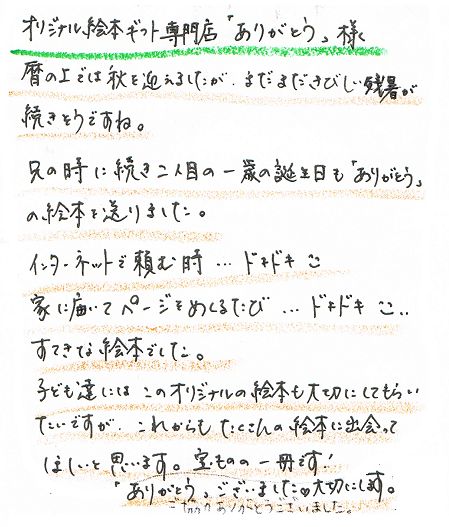 オリジナル絵本ギフト専門店「ありがとう」様へ
暦の上では秋を迎えましたが、まだまだきびしい残暑が
続きそうですね。
兄の時に続き二人目の一歳の誕生日も「ありがとう」
の絵本を送りました。
インターネットで頼む時…ドキドキ
家に届いてページをめくるたび…ドキドキ
すてきな絵本でした。
子ども達にはこのオリジナルの絵本も大切にしてもらい
たいですが、これからもたくさんの絵本に出会って
ほしいと思います。宝ものの一冊です!
「ありがとう」ございました♡大切にします。
ご協力ありがとうございました。